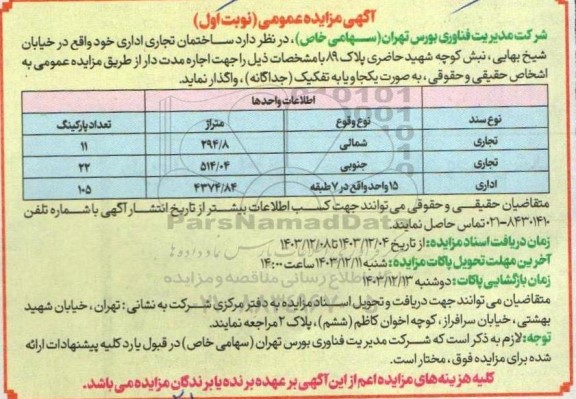 آگهی مزایده عمومی (نوبت اول)
شرکت مدیریت فناوری بورس تهران (سهامی خاص)، در نظر دارد ساختمان تجاری اداری خود واقع در خیابان
شیخ بهایی، نبش کوچه شهید حاضری پلاک ۸۹ با مشخصات ذیل را جهت اجاره مدت دار از طریق مزایده عمومی به
اشخاص حقیقی و حقوقی، به صورت یکجا و یا به تفکیک (جداگانه)، واگذار نماید.
اطلاعات واحدها
نوع سند نوع وقوع متراژ تعداد پارکینگ
تجاری شمالی ۲۹۴/۸ ۱۱
تجاری جنوبی ۵۱۴/۰۴ ۲۲
اداری ۱۵ واحد واقع در ۷ طبقه ۴۳۷۴/۸۴ ۱۰۵
متقاضیان حقیقی و حقوقی می توانند جهت کسب اطلاعات بیشتر از تاریخ انتشار آگهی با شماره تلفن
۰۲۱-۸۴۳۰۱۴۱۰ تماس حاصل نمایند.
زمان دریافت اسناد مزایده: از تاریخ ۱۴۰۳/۱۲/۰۴ تا ۱۴۰۳/۱۲/۰۸
آخرین مهلت تحویل پاکات مزایده: شنبه ۱۴۰۳/۱۲/۱۱ ساعت ۱۴:۰۰
زمان بازگشایی پاکات: دوشنبه ۱۴۰۳/۱۲/۱۳
متقاضیان می توانند جهت دریافت و تحویل اسناد مزایده به دفتر مرکزی شرکت به نشانی: تهران، خیابان شهید
بهشتی، خیابان سرافراز، کوچه اخوان کاظم (ششم)، پلاک ۲ مراجعه نمایند.
توجه: لازم به ذکر است که شرکت مدیریت فناوری بورس تهران (سهامی خاص) در قبول یا رد کلیه پیشنهادات ارائه
شده برای مزایده فوق، مختار است.
کلیه هزینه های مزایده اعم از این آگهی بر عهده برنده یا برندگان مزایده می باشد.
ParsNamadData